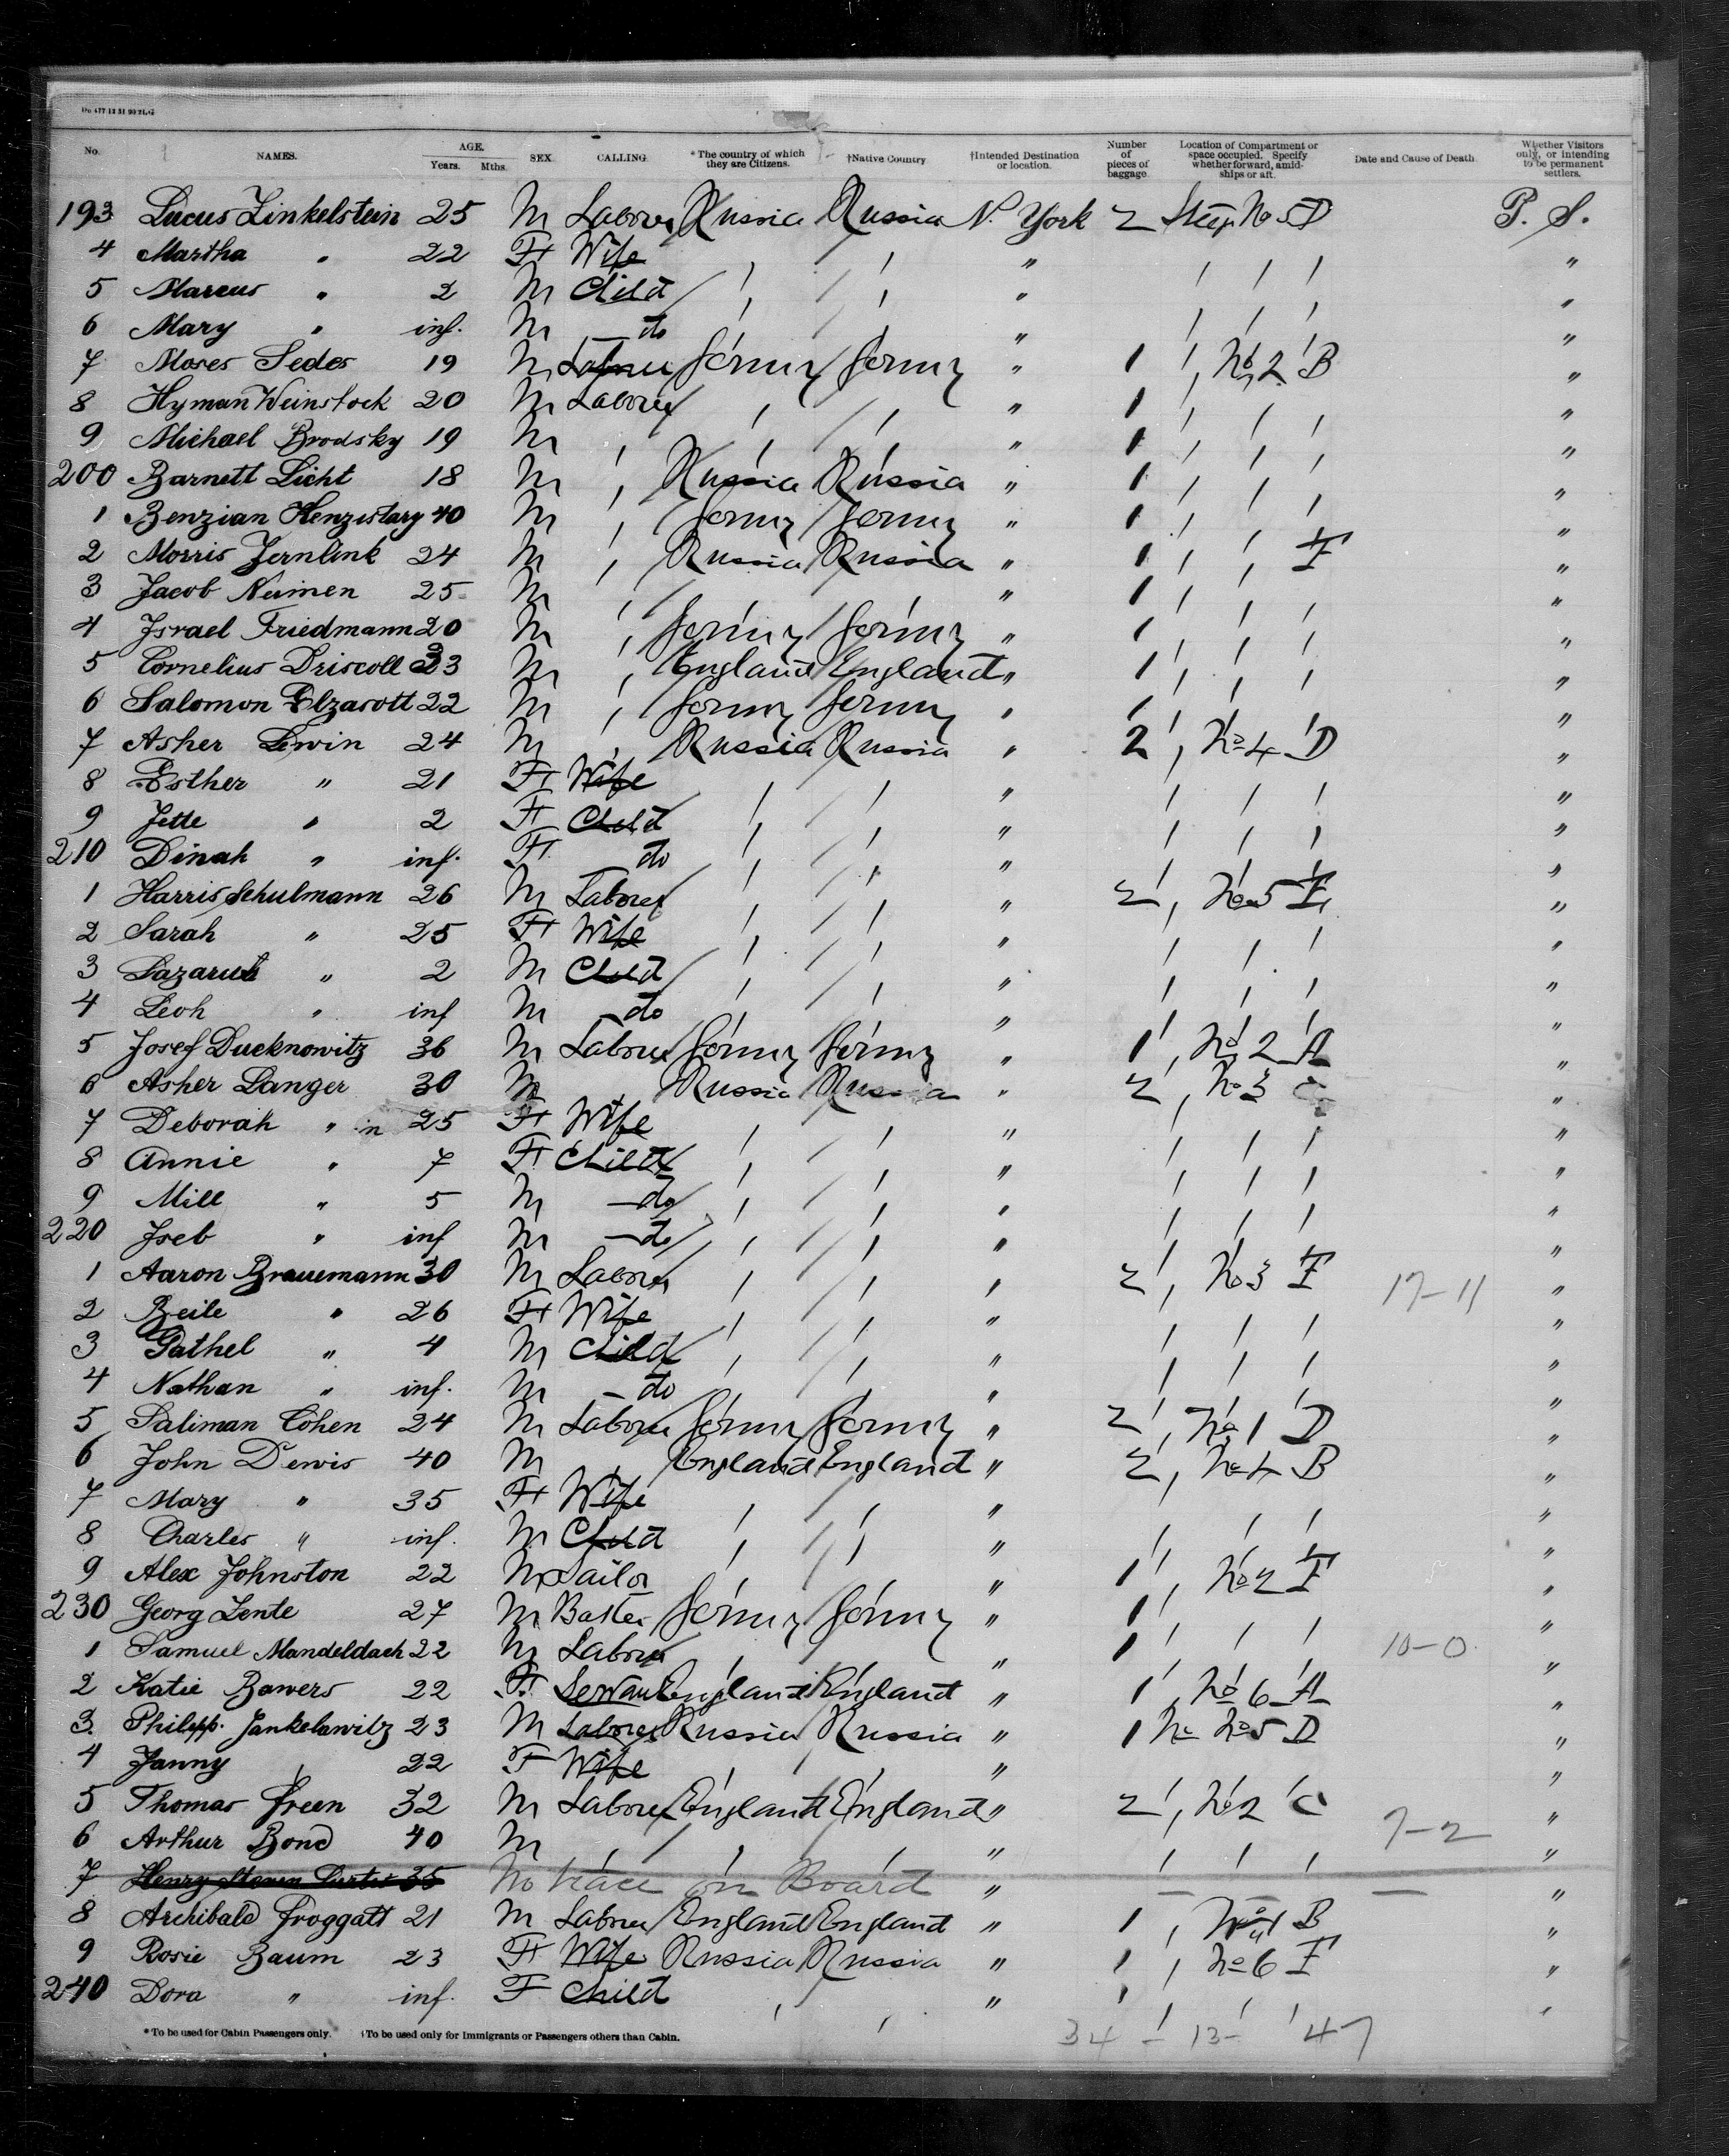 No. NAMES. AGE. Years. Mths. SEX. CALLING. *The country of which they are Citizens. †Native Country †Intended Destination or location. Number of pieces of baggage Location of Compartment or space occupied. Specify whether forward, amidships or aft. Date and Cause of Death. Whether Visitors only, or intending to be permanent settlers.
193 Lucus Zinkelstein 25 M Labourer Russia Russia N. York 2 Steer No 5 D P. S.
4 Martha " 22 F Wife " " "
5 Marcus " 2 M Child " " "
6 Mary " inf. M do " " "
7 Moses Seder 19 M Labourer Germy Germy " 1 " No 2 B "
8 Hyman Weinstock 20 M Labourer " " " 1 " " " "
9 Michael Brodsky 19 M " " " " 1 " " " "
200 Barnett Licht 18 M " Russia Russia " 1 " " " "
1 Benzian Henzistary 40 M " Germy Germy " 1 " " " "
2 Morris Zernlink 24 M " Russia Russia " 1 " " F "
3 Jacob Neimen 25 M " " " " 1 " " " "
4 Israel Friedmann 20 M " Germy Germy " 1 " " " "
5 Cornelius Driscoll 33 M " England England " 1 " " " "
6 Salomon Elzarott 22 M " Germy Germy " 1 " " " "
7 Asher Lewin 24 M " Russia Russia " 2 " No 4 D "
8 Esther " 21 F Wife " " " " " " "
9 Jette " 2 F Child " " " " " " "
210 Dinah " inf. F do " " " " " " "
1 Harris Schulmann 26 M Labourer " " " 2 " No 5 F "
2 Sarah " 25 F Wife " " " " " " "
3 Lazarus " 2 M Child " " " " " " "
4 Leoh " inf M do " " " " " " "
5 Josef Ducknowitz 36 M Labourer Germy Germy " 1 " No 2 A "
6 Asher Langer 30 M Russia Russia " 2 " No 3 C "
7 Deborah " in 25 F Wife " " " " " " "
8 Annie " 7 F Child " " " " " " "
9 Mill " 5 M do " " " " " " "
220 Iseb " inf M do " " " " " " "
1 Aaron Brauemann 30 M Labourer " " " 2 " No 3 F 17-11 "
2 Beile " 26 F Wife " " " " " " "
3 Gathel " 4 M Child " " " " " " "
4 Nathan " inf. M do " " " " " " "
5 Saliman Cohen 24 M Labourer Germy Germy " 2 " No 1 D "
6 John Dewis 40 M " England England " 2 " No 4 B "
7 Mary " 35 F Wife " " " " " " "
8 Charles " inf. M Child " " " " " " "
9 Alex Johnston 22 M Sailor " " " 1 " No 2 F "
230 Georg Zente 27 M Germy Germy " 1 " " " "
1 Samuel Mandeldach 22 M Labourer " " " 1 " " " 10-0 "
2 Katie Bowers 22 F Servant England England " 1 " No 6 A "
3 Philipp. Jankelawitz 23 M Labourer Russia Russia " 1 No 5 D "
4 Janny " 22 F Wife " " " "
5 Thomas Green 32 M Labourer England England " 2 " No 2 C "
6 Arthur Bond 40 M " " " " " " " 7-2 "
7 Henry Steven Curtis 35 No trace on Board " — — — "
8 Archibald Froggatt 21 M Labourer England England " 1 " B "
9 Rosie Baum 23 F Wife Russia Russia " 1 " No 6 F "
240 Dora " inf. F Child " " " " " " "
34 - 13 - 47
*To be used for Cabin Passengers only. †To be used only for Immigrants or Passengers others than Cabin.